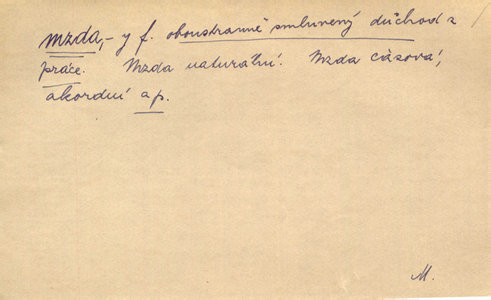 mzda, - y f. oboustranně smluvený důchod z
práce. Mzda naturalní. Mzda časová,
akordní a p.
M.